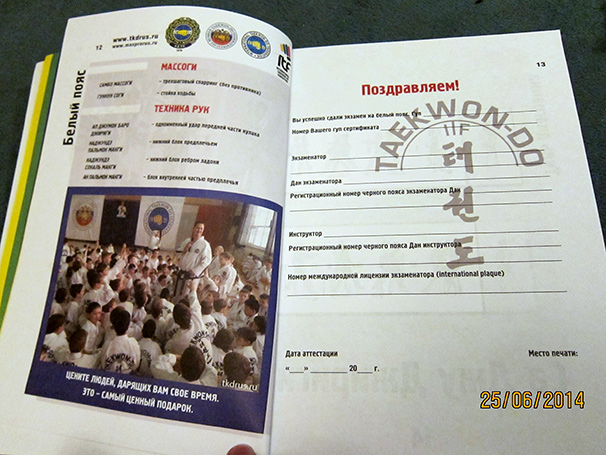 12
www.tkdrus.ru
www.maxprorus.ru
Белый пояс
МАССОГИ
САМБО МАССОГИ
– трехшаговый спарринг (без противника)
ГУННУН СОГИ
– стойка ходьбы
ТЕХНИКА РУК
АП ДЖУМОК БАРО ДЖИРУГИ
– одноименный удар передней части кулака
НАДЖУНДЭ ПАЛЬМОК МАНГИ
– нижний блок предплечьем
НАДЖУНДЭ СОНАЛЬ МАНГИ
– нижний блок ребром ладони
АН ПАЛЬМОК МАНГИ
– блок внутренней частью предплечья
TAEKWON-DO
tkdrus.ru
ЦЕНИТЕ ЛЮДЕЙ, ДАРЯЩИХ ВАМ СВОЕ ВРЕМЯ.
ЭТО – САМЫЙ ЦЕННЫЙ ПОДАРОК.
13
Поздравляем!
Вы успешно сдали экзамен на белый пояс, гуп
Номер Вашего гуп сертификата
TAEKWON-DO
ITF
태권도
Экзаменатор
Дан экзаменатора
Регистрационный номер черного пояса экзаменатора Дан
Инструктор
Регистрационный номер черного пояса Дан инструктора
Номер международной лицензии экзаменатора (international plaque)
Дата аттестации
Место печати:
«___» ________ 20 ___ г.
25/06/2014